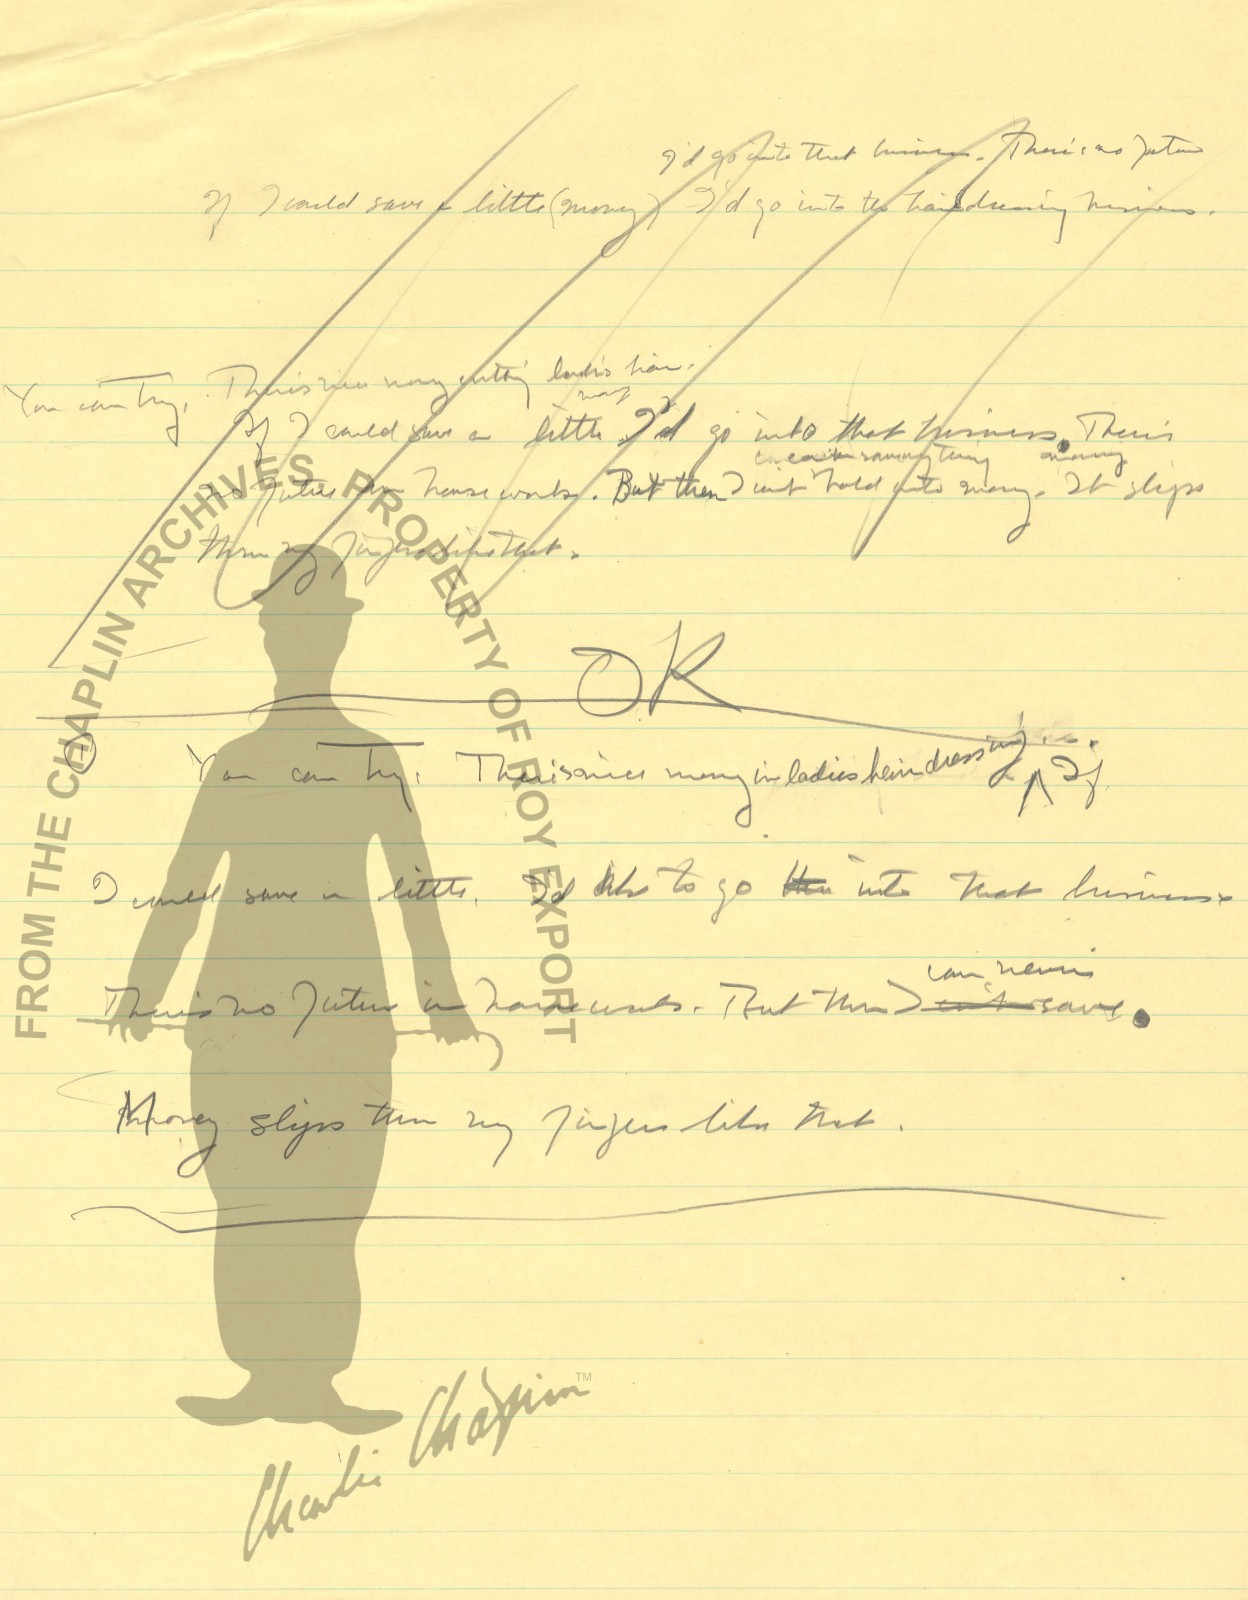 I'd go into that business. There's no future
If I could save a little (money) I'd go into the hairdressing business.
You can try. There's nice money cutting ladies hair.
money
If I could save a little I'd go into that business. There's
money
no future in housework. But then I can't hold onto money. It slips
thru my fingers like that.
OK
You can try. There's nice money in ladies hairdressing. If
I could save a little. I'd like to go into that business.
can never
There's no future in housework. But then I can't save.
Money slips thru my fingers like that.
FROM THE CHAPLIN ARCHIVES PROPERTY OF ROY EXPORT
Charlie Chaplin™